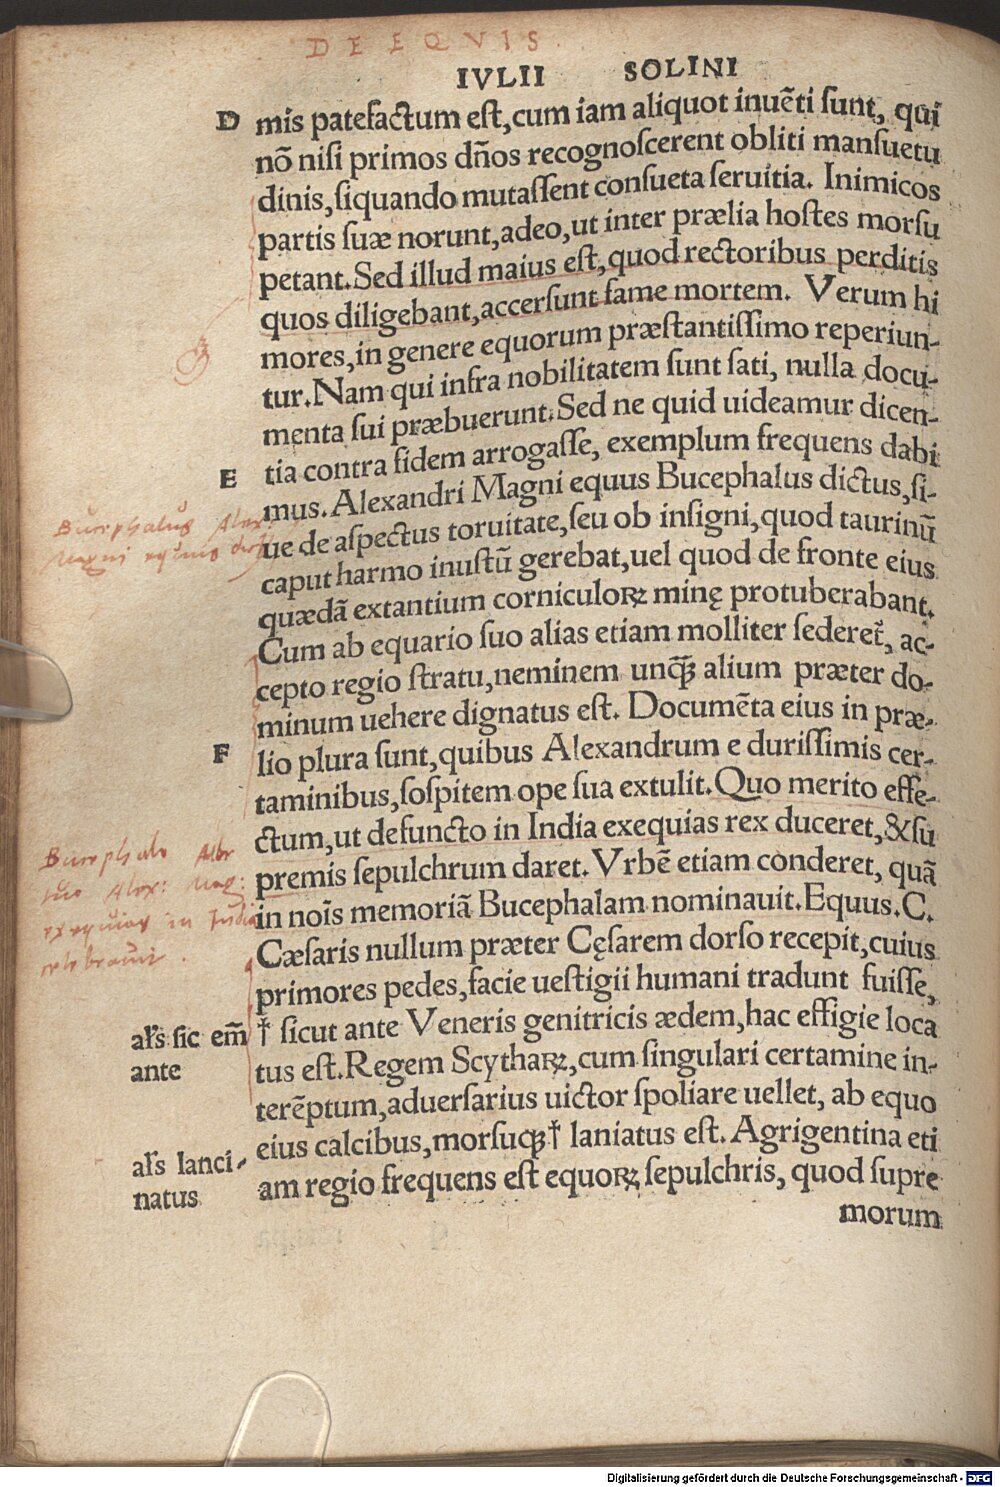 DE EQVIS
IVLII SOLINI
D mis patefactum est,cum iam aliquot inuẽti sunt, qui
nõ nisi primos dños recognoscerent obliti mansuetu
dinis,siquando mutassent consueta seruitia. Inimicos
partis suæ norunt,adeo,ut inter prælia hostes morsu
petant.Sed illud maius est,quod rectoribus perditis
quos diligebant,accersunt fame mortem. Verum hi
mores,in genere equorum præstantissimo reperiun-
tur.Nam qui infra nobilitatem sunt sati, nulla docu-
menta sui præbuerunt.Sed ne quid uideamur dicen-
E tia contra fidem arrogasse, exemplum frequens dabi
mus.Alexandri Magni equus Bucephalus dictus,si-
Bucephalus Alex:
Magni equus
ue de aspectus toruitate,seu ob insigni,quod taurinũ
caput harmo inustũ gerebat,uel quod de fronte eius
quædã extantium corniculoꝝ minę protuberabant.
Cum ab equario suo alias etiam molliter sederet̃, ac-
cepto regio stratu,neminem unꝗ̃ alium præter do-
minum uehere dignatus est. Documẽta eius in præ-
F lio plura sunt,quibus Alexandrum e durissimis cer-
taminibus,sospitem ope sua extulit.Quo merito effe-
ctum,ut defuncto in India exequias rex duceret,&su
premis sepulchrum daret. Vrbẽ etiam conderet, quã
Bucephalo
Alex: Mag:
exequias in India
celebrauit.
in nois̃ memoriã Bucephalam nominauit.Equus.C.
Cæsaris nullum præter Cęsarem dorso recepit,cuius
primores pedes,facie uestigii humani tradunt fuisse,
† sicut ante Veneris genitricis ædem,hac effigie loca
al̃s sic em̃
ante
tus est.Regem Scythaꝝ,cum singulari certamine in-
terẽptum,aduersarius uictor spoliare uellet, ab equo
eius calcibus,morsuqꝫ† laniatus est. Agrigentina eti
al̃s lanci-
natus
am regio frequens est equoꝝ sepulchris, quod supre
morum
Digitalisierung gefördert durch die Deutsche Forschungsgemeinschaft - DFG